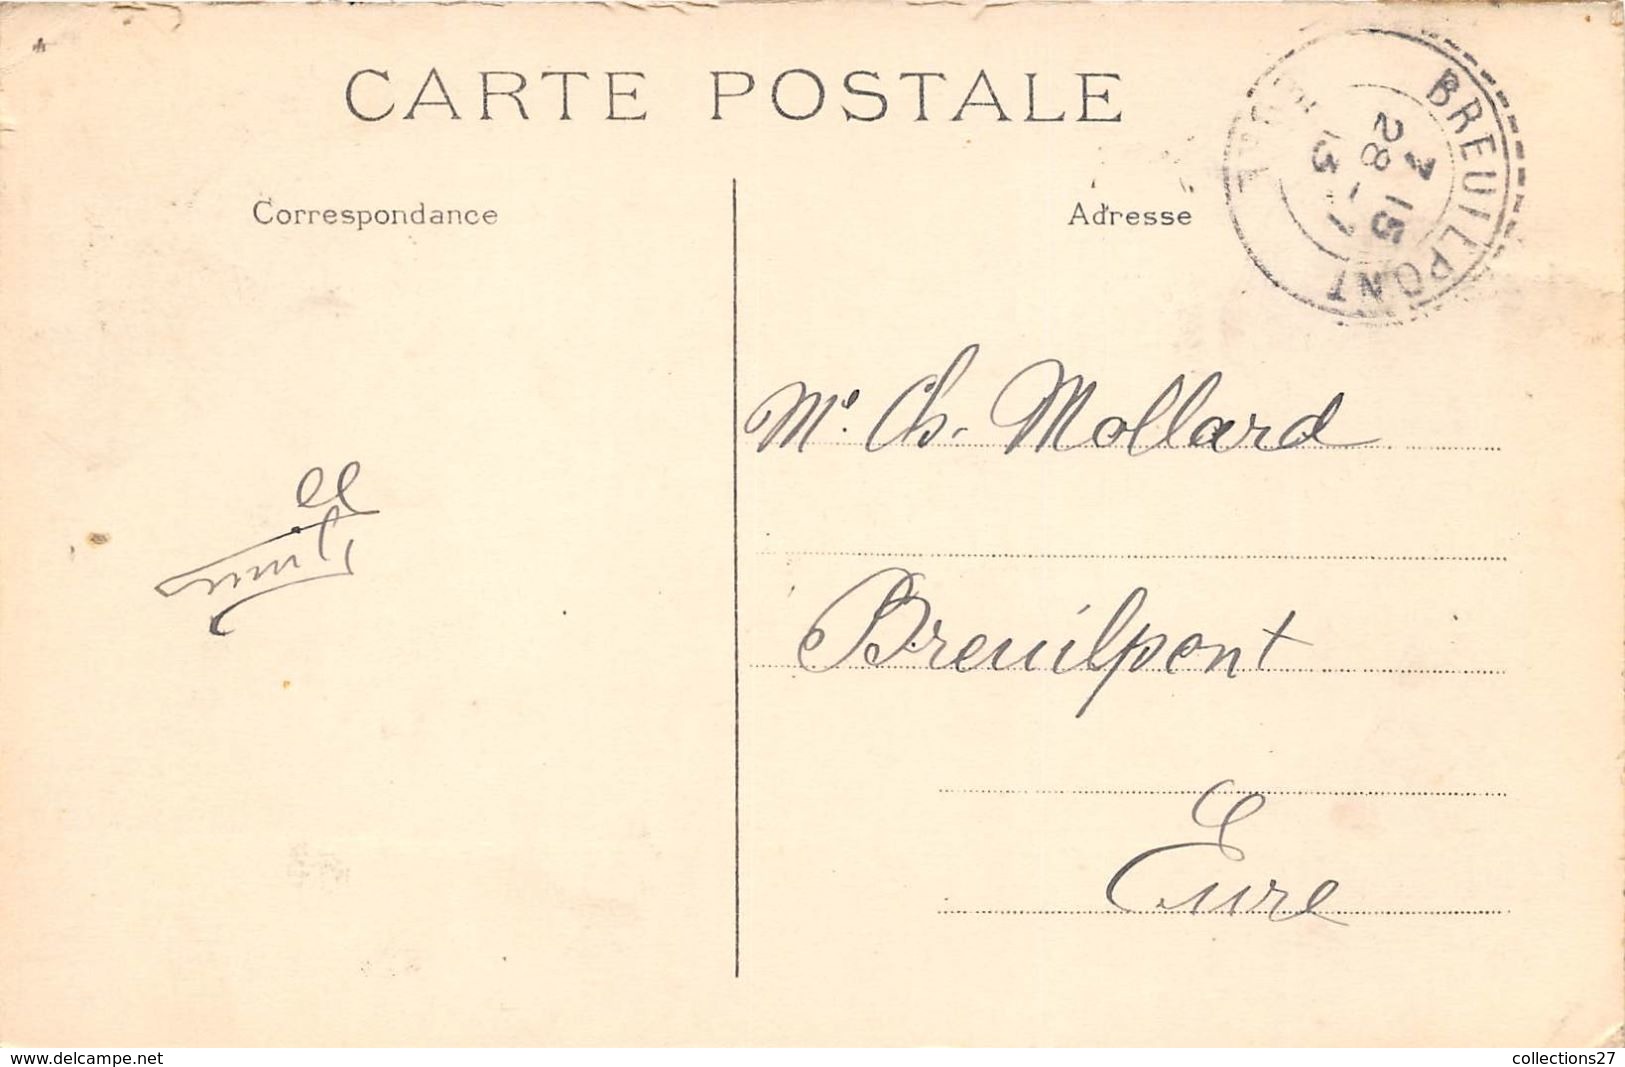 CARTE POSTALE
Correspondance
Adresse
BREUILPONT
EURE
7 15
28 - 7
13
Mr. Ch. Mollard
Breuilpont
Eure
www.delcampe.net
collections27